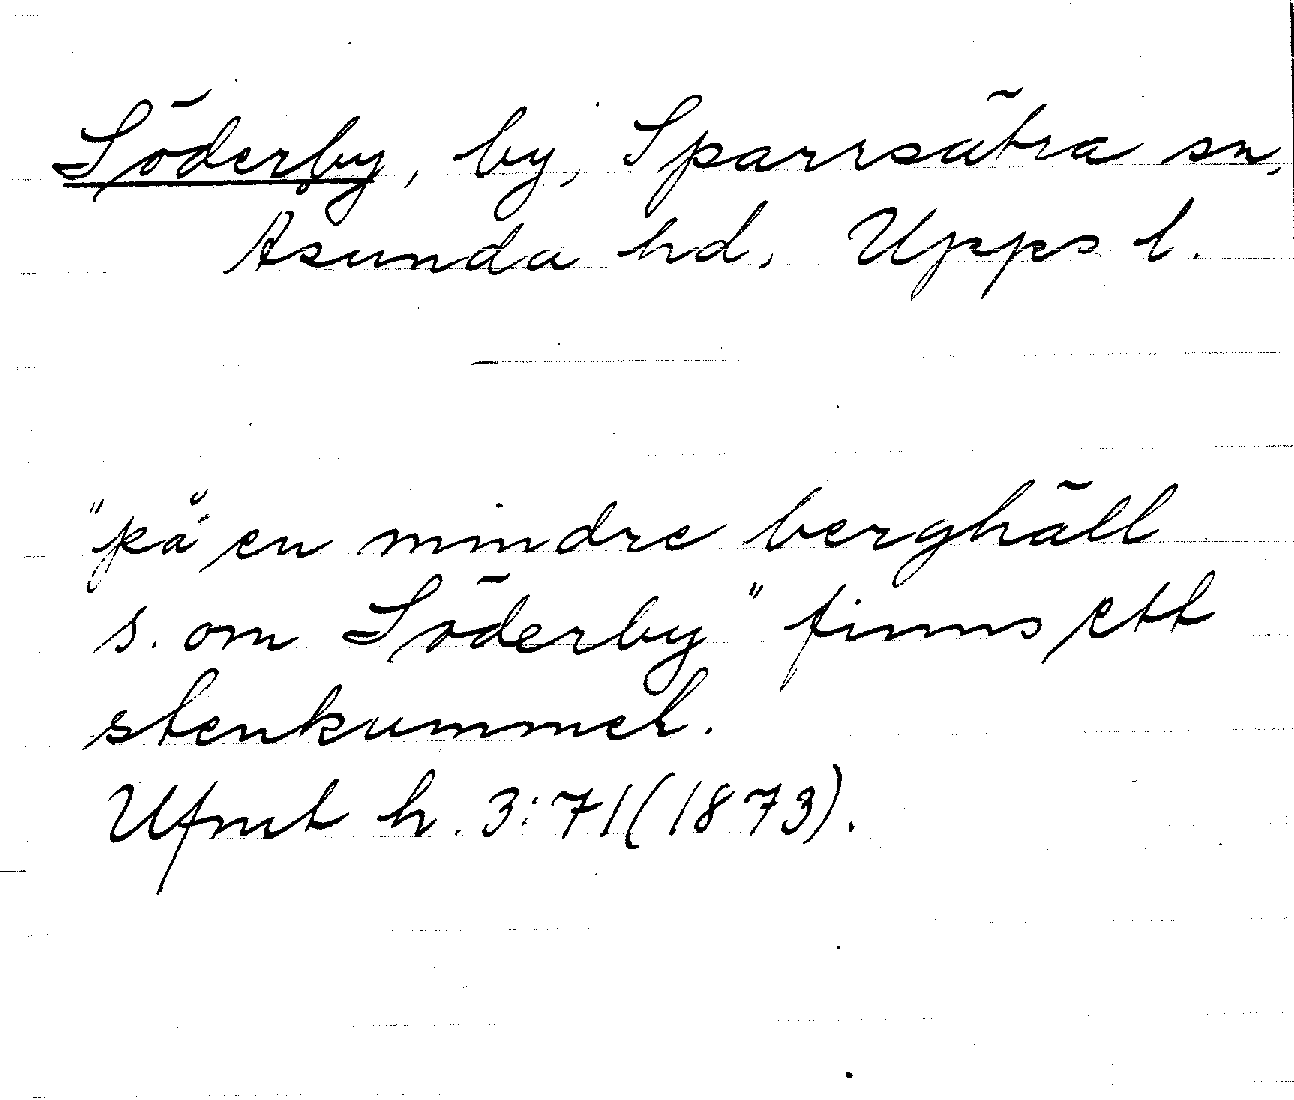 Söderby, by, Sparrsätra sn,
Asunda hd, Upps l.
"på en mindre berghäll
s. om Söderby" finns ett
stenkummel.
Ufmt h. 3:71(1873).